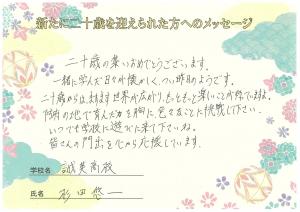 新たに二十歳を迎えられた方へのメッセージ
二十歳の集いおめでとうございます。
一緒に学んだ日々が懐かしく、つい昨日のようです。
二十歳からは、ますます世界が広がり、もっともっと楽しいことが待っていますよ。
の地で育んだ力を胸に、色々なことに挑戦して下さい。
いつでも学校に遊びに来て下さいね。
皆さんの門出を心から応援しています。
学校名 誠美高校
氏名 杉田 悠一